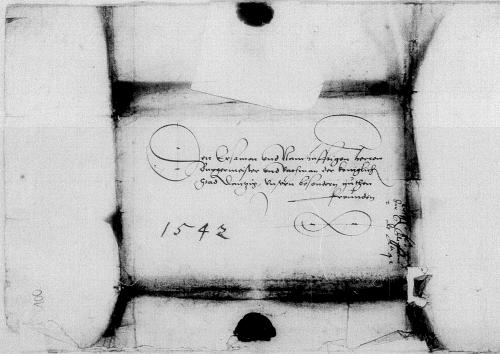 Den Ersamen und Namhafftigen herren
Burgermeister und Rathman der königlich
Stad Dantzig, unsern besondern guthen
freunden
1542
100